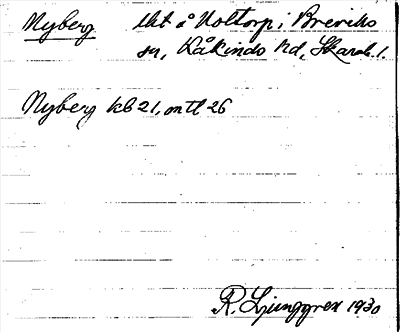 Nyberg lht å Noltorp i Breviks
sn, Kåkinds hd, Skarab. l.
Nyberg kb 21, ontl 26
R. Ljunggren 1930